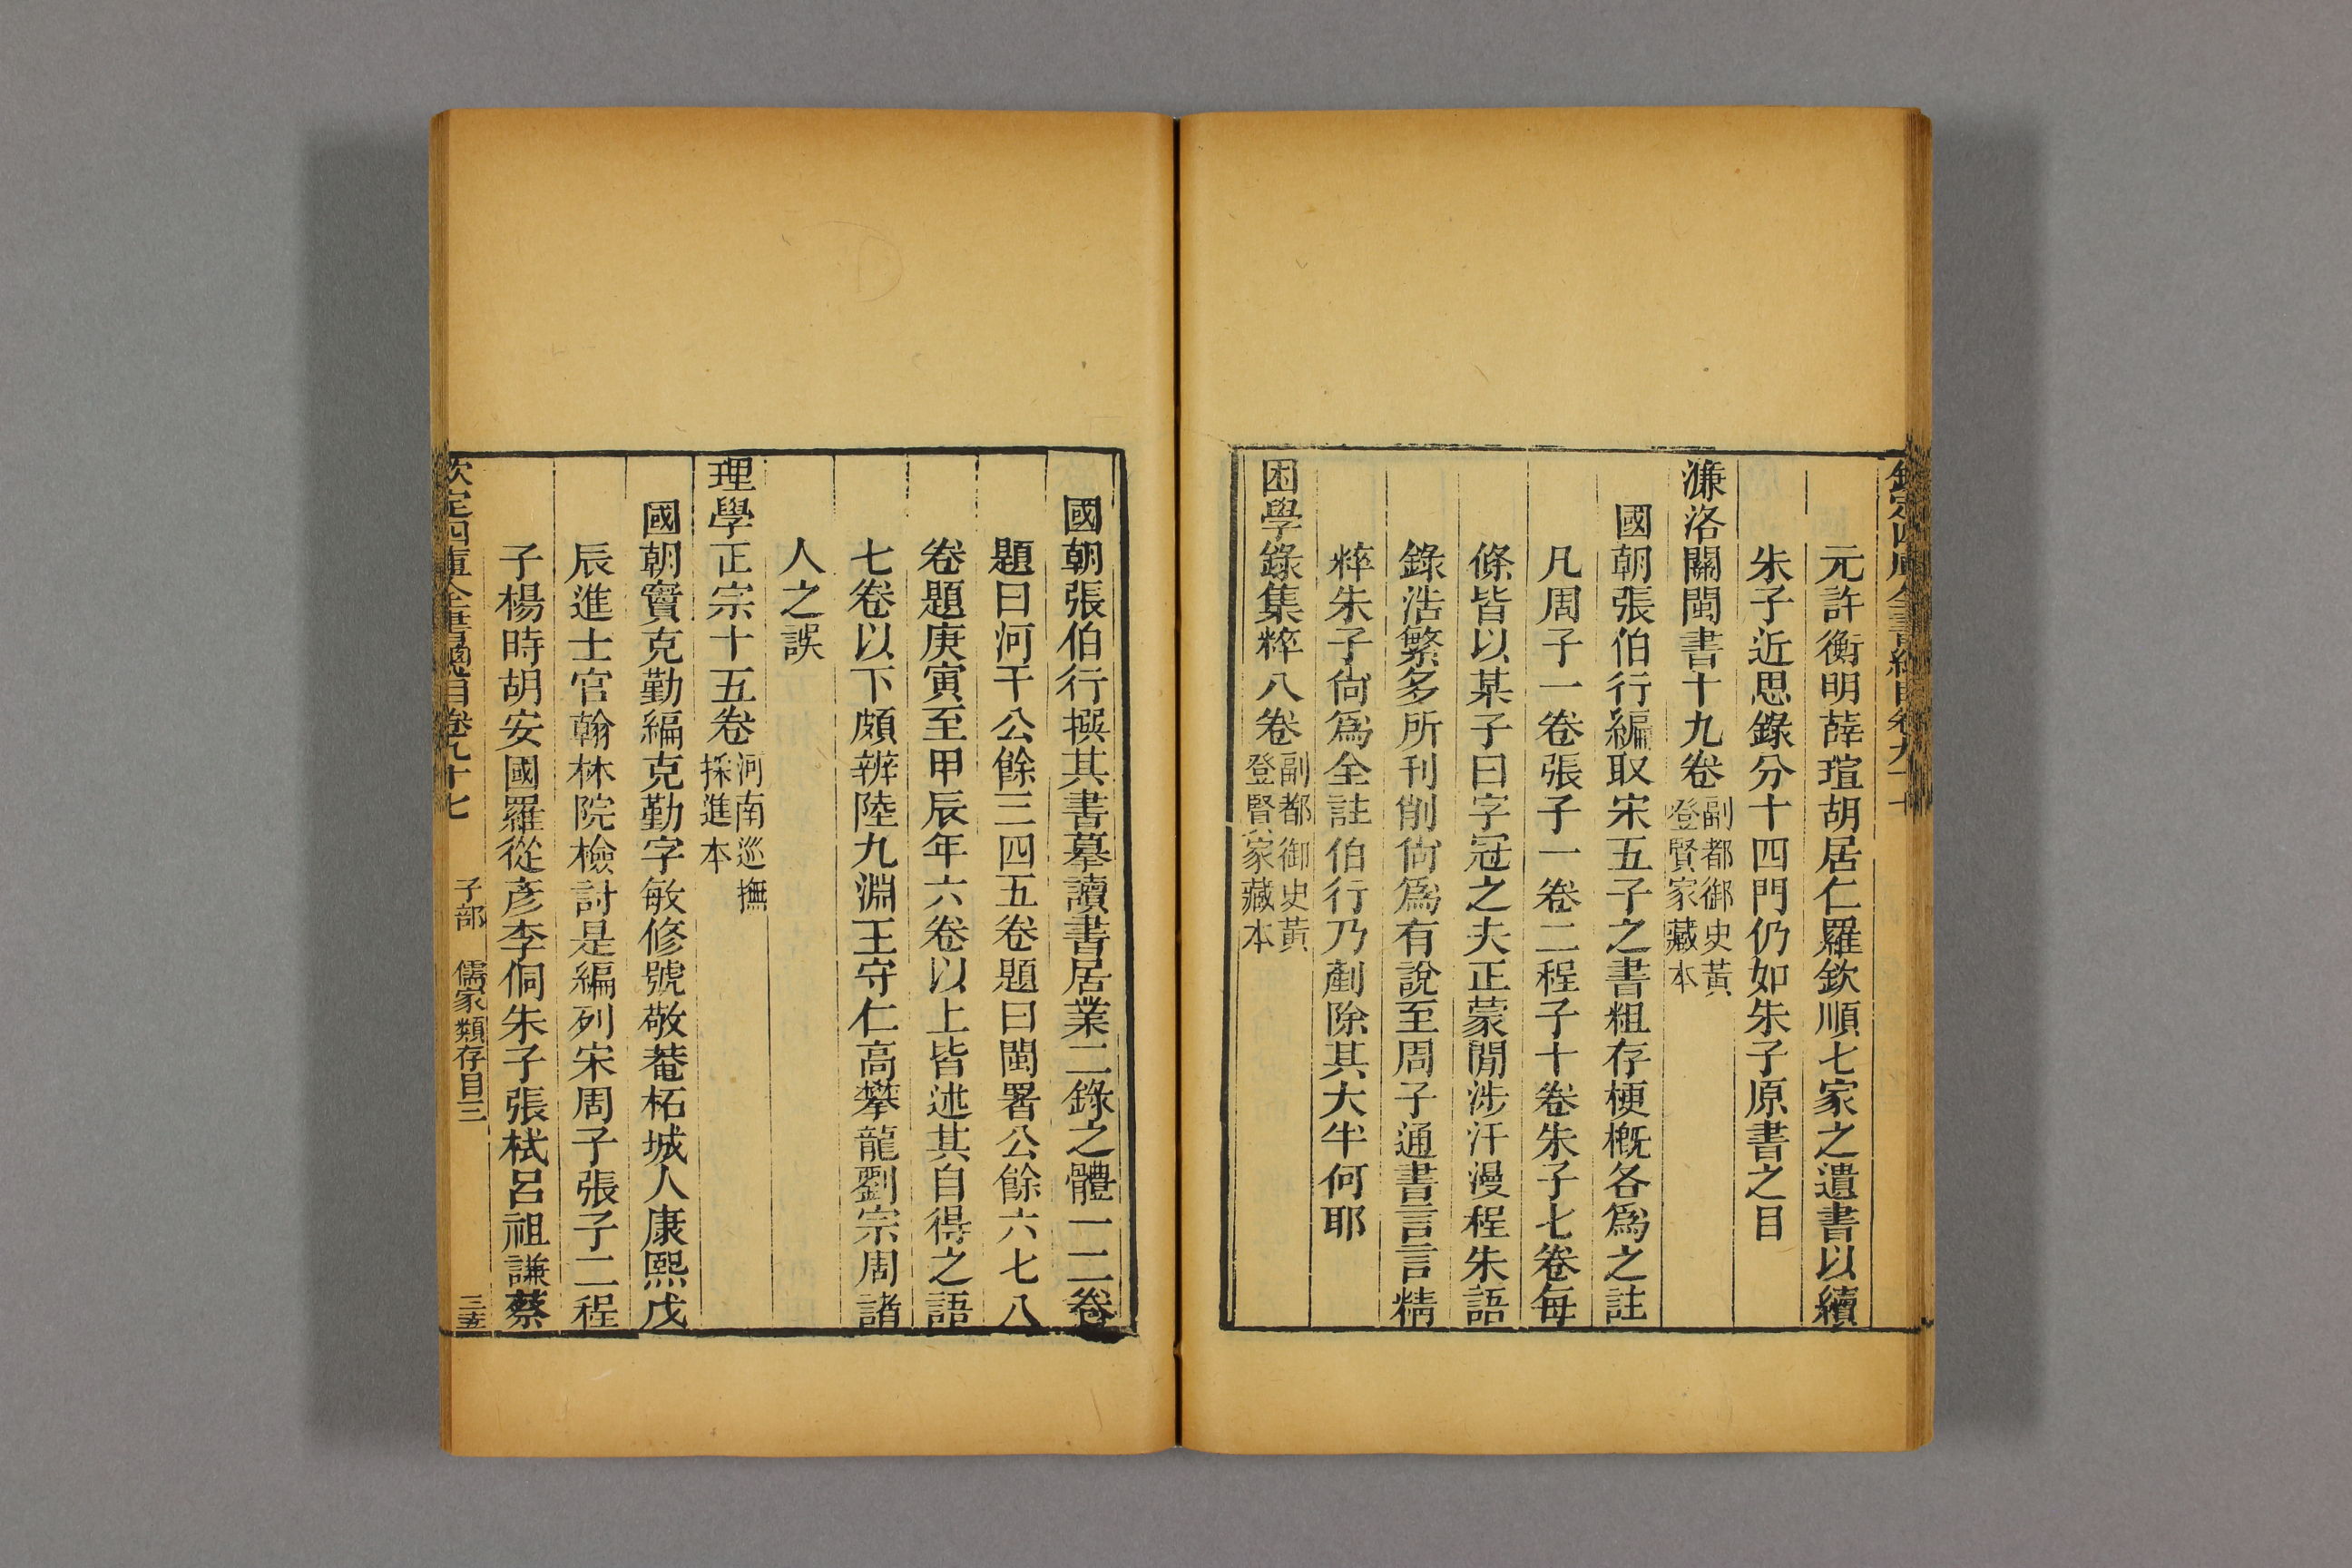 欽定四庫全書總目卷九十七
元許衡明薛瑄胡居仁羅欽順七家之遺書以續
朱子近思錄分十四門仍如朱子原書之目
濂洛關閩書十九卷副都御史黃登賢家藏本
國朝張伯行編取宋五子之書粗存梗槪各爲之註
凡周子一卷張子一卷二程子十卷朱子七卷每
條皆以某子曰字冠之夫正蒙閒涉汗漫程朱語
錄浩繁多所刊削尙爲有說至周子通書言言精
粹朱子尙爲全註伯行乃剷除其大半何耶
困學錄集粹八卷副都御史黃登賢家藏本
國朝張伯行撰其書摹讀書居業二錄之體一二卷
題曰河干公餘三四五卷題曰閩署公餘六七八
卷題庚寅至甲辰年六卷以上皆述其自得之語
七卷以下頗辨陸九淵王守仁高攀龍劉宗周諸
人之誤
理學正宗十五卷河南巡撫採進本
國朝竇克勤編克勤字敏修號敬菴柘城人康熙戊
辰進士官翰林院檢討是編列宋周子張子二程
子楊時胡安國羅從彥李侗朱子張栻呂祖謙蔡
欽定四庫全書總目卷九十七 子部 儒家類存目三 三五